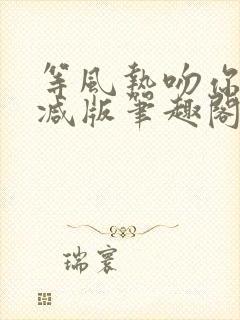 等風熱吻你
減版筆趣閣
瑞寰